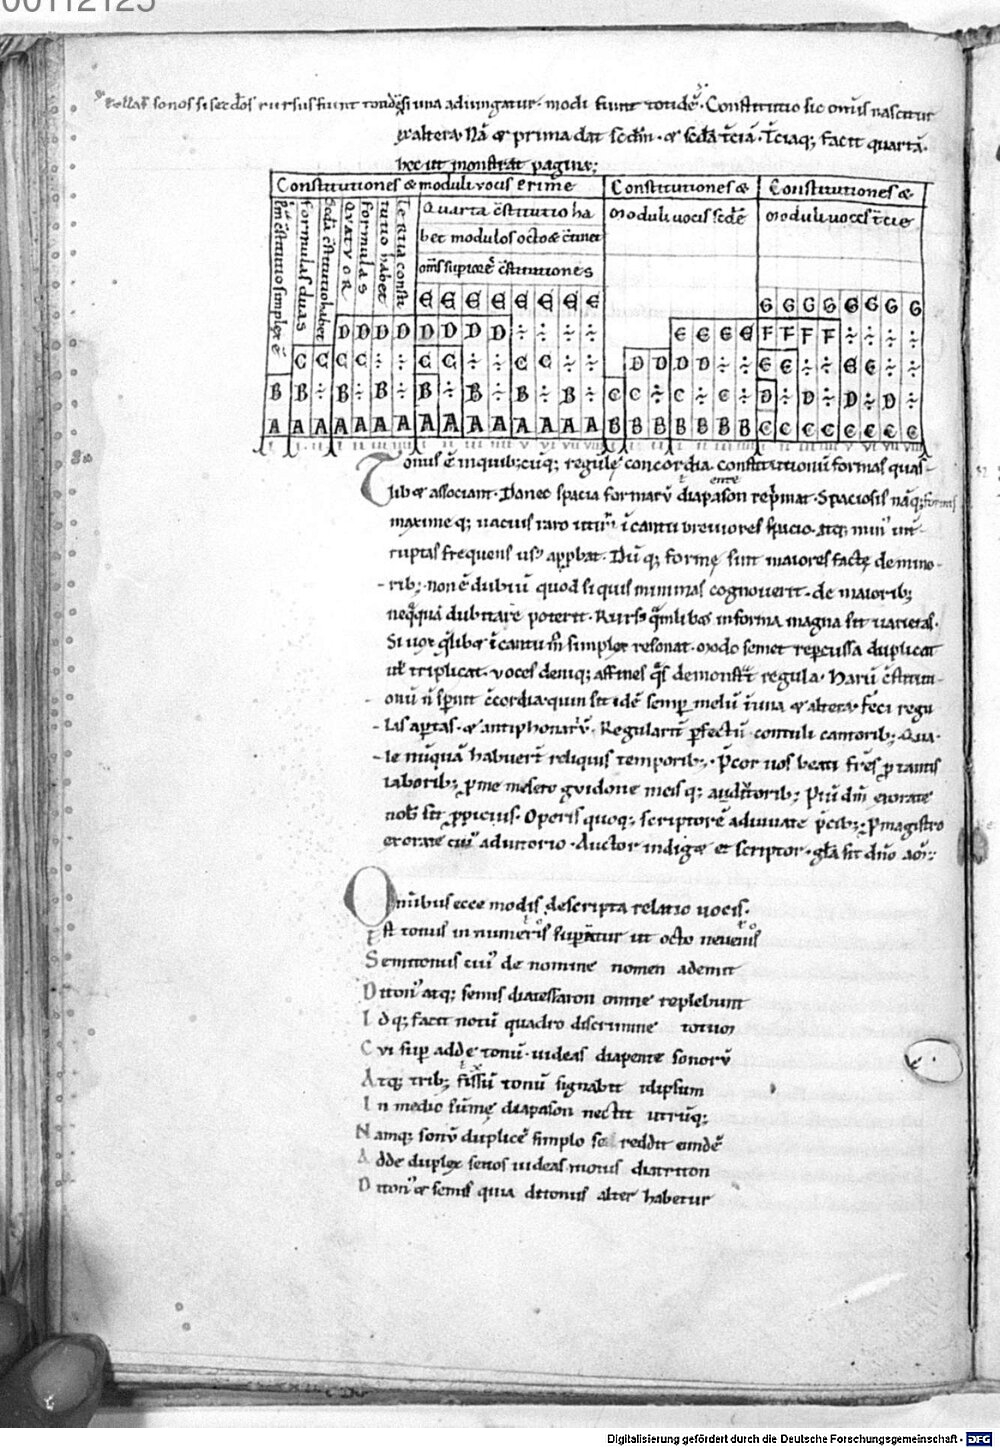 00112125
sonos si secd̄os rursus fiunt
una adiungatur. modi fiunt totidē. Constitutio sic om̄is nascitur
ex altera. Nā & prima dat secdm̄. & secd̄a t̄ciā. T̄ciaq; facit quartā.
hec ut monstrat pagina;
Constitutiones & moduli vocis Prime
Constitutiones &
moduli vocis secd̄e
Constitutiones &
moduli vocis t̄cie
formulas duas
QVATVOR
formulas
tutio habet
Tertia consti
Quarta c̄stitutio ha
bet modulos octo & c̄tinet
om̄s supiores c̄stitutiones
E E E E E E E E
G G G G G G G G
D D D D D D D D ÷ ÷ ÷ ÷
E E E E F F F F ÷ ÷ ÷ ÷
C C C C ÷ ÷ C C ÷ ÷ C C ÷ ÷
D D D D ÷ ÷ E E ÷ ÷ E E ÷ ÷
B B ÷ B ÷ B ÷ B ÷ B ÷ B ÷ B ÷
C C ÷ C ÷ C ÷ D ÷ D ÷ D ÷ D ÷
A A A A A A A A A A A A A A A
B B B B B B B C C C C C C C C
Tonus ē in quib;cūq; regule concordia constitutionū formas quas-
lib& associant. Donec spacia formarū diapason rep̄mat. Spaciosis nāq; formis
maxime q; vacuis raro utim̄ ī cantu breviores spacio. atq; min' int-
ruptas frequens us' app̄bat. Dū q; forme sint maiores facte de mino-
rib; non ē dubiū quod si quis minimas cognoverit. de maiorib;
neq̄quā dubitare poterit. Rurs' q̄mlib& informa magna sit varietas.
Si vox q̄lib& ī cantu m̄ simplex resonat. modo semet repercussa duplicat
ut triplicat. voces deniq; affines q̄s demonst̄t regula. Harū c̄stituti-
onū n̄ sp̄nit c̄cordia. quin sit idē semp̄ melū ī una & altera. feci regu
las ap̄tas. & antiphonariū. Regularit̄ p̄fectū contuli cantorib; Qua-
le nūquā habuer̄t reliquis temporib;. P̄cor vos beati fr̄es p̄ tantis
laborib; p̄ me misero gvidone meis q; auditorib; Piū dm̄ exorate
nob̄ sit p̄picius. Operis quoq; scriptorē adiuvate p̄cib;. P̄ magistro
exorate cui' adiutorio. Auctor indig& et scriptor. gl̄a sit dn̄o am̄:
Omnibus ecce modis descripta relatio vocis.
Est tonus in numeris supatur ut octo novenis
Semitonus cui' de nomine nomen ademit
Diton' atq; semis diatessaron omne replebunt
Idq; facit notū quadro discrimine totum
Cvi sup adde tonū. videas diapente sonorū
Atq; trib; fissū tonū signabit idipsum
In medio sūme diapason nectit utrūq;
Namq; sonū duplicē simplo reddit eundē
Adde duplex senos videas motus diatriton
Diton' & semis quia ditonus alter habetur
Digitalisierung gefördert durch die Deutsche Forschungsgemeinschaft - DFG